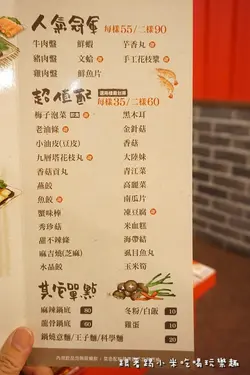 人氣冠軍 每樣55/二樣90
牛肉盤 鮮蝦 芋香丸
豬肉盤 文蛤 手工花枝漿
雞肉盤 鮮魚片
超值配 每樣35/二樣60
梅子泡菜 黑木耳
老油條 金針菇
小油皮(豆皮) 香菇
九層塔花枝丸 大陸妹
香菇貢丸 青江菜
燕餃 高麗菜
魚餃 南瓜片
蟹味棒 凍豆腐
秀珍菇 米血糕
甜不辣條 海帶菇
麻吉燒(芝麻) 虱目魚丸
水晶餃 玉米筍
其它單點
麻辣鍋底 80 冬粉/白飯 10
龍骨鍋底 30 雞蛋 10
鍋燒意麵/王子麵/科學麵 20